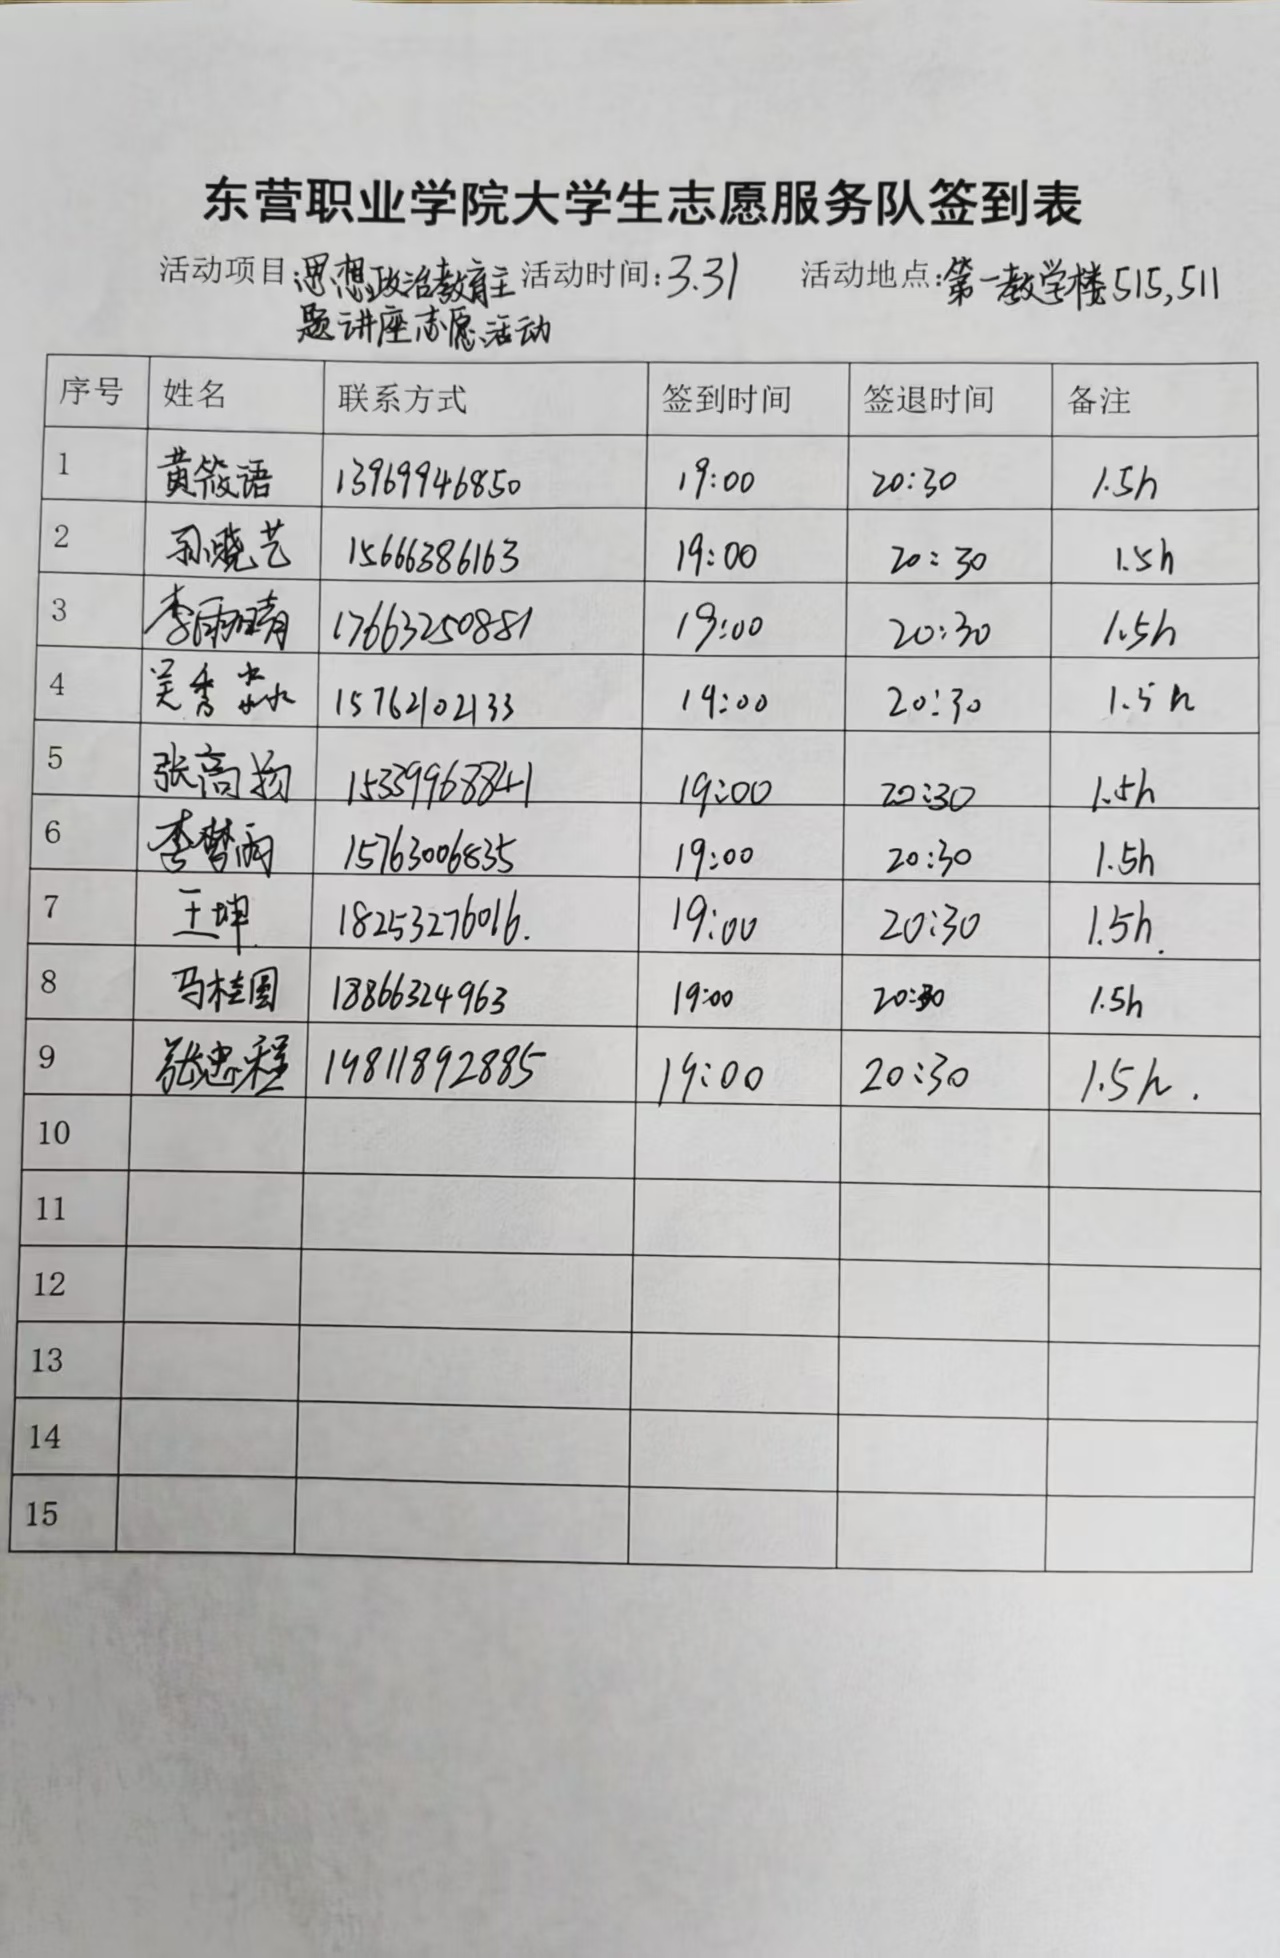 东营职业学院大学生志愿服务队签到表
活动项目:思想政治教育主 活动时间:3.31 活动地点:第一教学楼515,511
题讲座志愿活动
序号 姓名 联系方式 签到时间 签退时间 备注
1 黄筱语 13969946850 19:00 20:30 1.5h
2 孙晓艺 15666386163 19:00 20:30 1.5h
3 李雨晴 17663250881 19:00 20:30 1.5h
4 吴香淼 15762102133 19:00 20:30 1.5h
5 张高扬 15339968841 19:00 20:30 1.5h
6 李梦雨 15763006835 19:00 20:30 1.5h
7 王坤 18253276016. 19:00 20:30 1.5h.
8 马桂圆 18866324963 19:00 20:30 1.5h
9 张忠程 19811892885 19:00 20:30 1.5h.
10
11
12
13
14
15